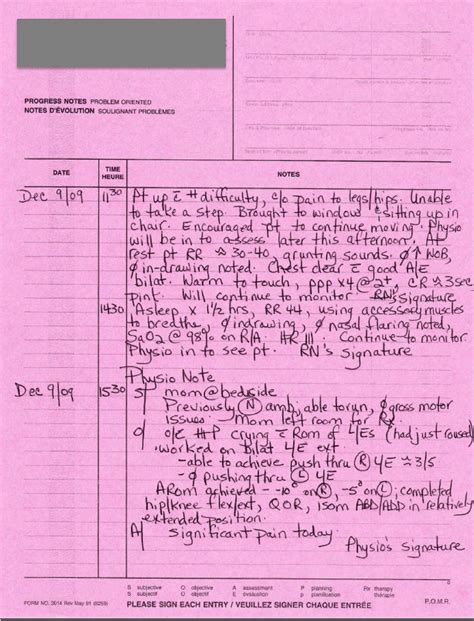 PROGRESS NOTES PROBLEM ORIENTED
NOTES D'ÉVOLUTION SOULIGNANT PROBLÈMES
DATE TIME HEURE NOTES
Dec 9/09 1130 Pt up c̄ ++ difficulty, c/o pain to legs/hips. Unable
to take a step. Brought to window sitting up in
chair. Encouraged pt to continue moving. Physio
will be in to assess later this afternoon. At
rest pt RR ≈ 30-40, grunting sounds. ∅ ↑ WOB,
∅ in-drawing noted. Chest clear c̄ good A/E
bilat. Warm to touch, ppp x4 @ 2+, CR ≈ 3sec
pink. Will continue to monitor. RN's signature
1430 Asleep x 1½ hrs, RR 44, using accessory muscles
to breathe, ∅ indrawing, ∅ nasal flaring noted,
SaO2 @ 98% on R/A. HR 111. Continue to monitor
Physio in to see pt. RN's signature
Dec 9/09 1530 Physio Note
S/ mom @ bedside
Previously Ⓝ amb, able to run, ∅ gross motor
issues. Mom left room for Rx.
O/ o/e #P crying c̄ Rom of 4/Es (had just roused)
Worked on Bilat 4/E ext
-able to achieve push thru Ⓡ 4/E ≈ 3/5
-∅ pushing thru Ⓛ 4/E
ARom achieved - -10° on Ⓡ, -5° on Ⓛ; completed
hip/knee flex/ext, QOR, isom ABD/ADD in relatively
extended position.
A/ significant pain today.
Physio's Signature
S subjective O objective A assessment P planning Rx therapy
S subjectif O objectif É évaluation P planification thérapie
FORM NO. 3614 Rev May 91 PLEASE SIGN EACH ENTRY / VEUILLEZ SIGNER CHAQUE ENTRÉE P.O.M.R.